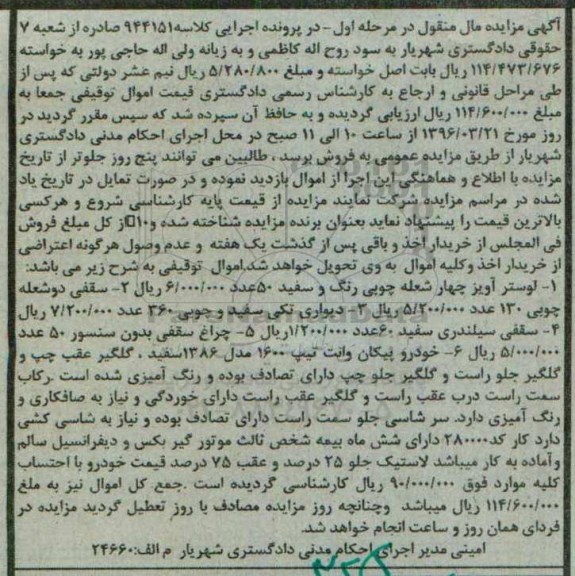 آگهی مزایده مال منقول در مرحله اول – در پرونده اجرایی کلاسه ۹۴۴۱۵۱ صادره از شعبه ۷
حقوقی دادگستری شهریار به سود روح اله کاظمی و به زیانه ولی اله حاجی پور به خواسته
۱۱۴/۴۷۳/۶۷۶ ریال بابت اصل خواسته و مبلغ ۵/۲۸۰/۸۰۰ ریال نیم عشر دولتی که پس از
طی مراحل قانونی و ارجاع به کارشناس رسمی دادگستری قیمت اموال توقیفی جمعا به
مبلغ ۱۱۴/۶۰۰/۰۰۰ ریال ارزیابی گردیده و به حافظ آن سپرده شد که سپس مقرر گردید در
روز مورخ ۱۳۹۶/۰۳/۲۱ از ساعت ۱۰ الی ۱۱ صبح در محل اجرای احکام مدنی دادگستری
شهریار از طریق مزایده عمومی به فروش برسد ، طالبین می توانند پنج روز جلوتر از تاریخ
مزایده با اطلاع و هماهنگی این اجرا از اموال بازدید نموده و در صورت تمایل در تاریخ یاد
شده در مراسم مزایده شرکت نمایند مزایده از قیمت پایه کارشناسی شروع و هرکسی
بالاترین قیمت را پیشنهاد نماید بعنوان برنده مزایده شناخته شده و۱۰□از کل مبلغ فروش
فی المجلس از خریدار اخذ و باقی پس از گذشت یک هفته و عدم وصول هرگونه اعتراضی
از خریدار اخذ وکلیه اموال به وی تحویل خواهد شد.اموال توقیفی به شرح زیر می باشد:
۱- لوستر آویز چهار شعله چوبی رنگ و سفید ۵۰عدد ۶/۰۰۰/۰۰۰ ریال ۲- سقفی دوشعله
چوبی ۱۳۰ عدد ۵/۲۰۰/۰۰۰ ریال ۳- دیواری تکی سفید و چوبی ۳۶۰ عدد ۷/۲۰۰/۰۰۰ ریال
۴- سقفی سیلندری سفید ۶۰عدد ۱/۲۰۰/۰۰۰ریال ۵- چراغ سقفی بدون سنسور ۵۰ عدد
۵/۰۰۰/۰۰۰ ریال ۶- خودرو پیکان وانت تیپ ۱۶۰۰ مدل ۱۳۸۶سفید ، گلگیر عقب چپ و
گلگیر جلو راست و گلگیر جلو چپ دارای تصادف بوده و رنگ آمیزی شده است .رکاب
سمت راست درب عقب راست و گلگیر عقب راست دارای خوردگی و نیاز به صافکاری و
رنگ آمیزی دارد. سر شاسی جلو سمت راست دارای تصادف بوده و نیاز به شاسی کشی
دارد کار کد۲۸۰۰۰۰ دارای شش ماه بیمه شخص ثالث موتور گیر بکس و دیفرانسیل سالم
وآماده به کار میباشد لاستیک جلو ۲۵ درصد و عقب ۷۵ درصد قیمت خودرو با احتساب
کلیه موارد فوق ۹۰/۰۰۰/۰۰۰ ریال کارشناسی گردیده است .جمع کل اموال نیز به ملغ
۱۱۴/۶۰۰/۰۰۰ ریال میباشد وچنانچه روز مزایده مصادف با روز تعطیل گردید مزایده در
فردای همان روز و ساعت انجام خواهد شد.
امینی مدیر اجرای احکام مدنی دادگستری شهریار م الف:۲۴۶۶۰